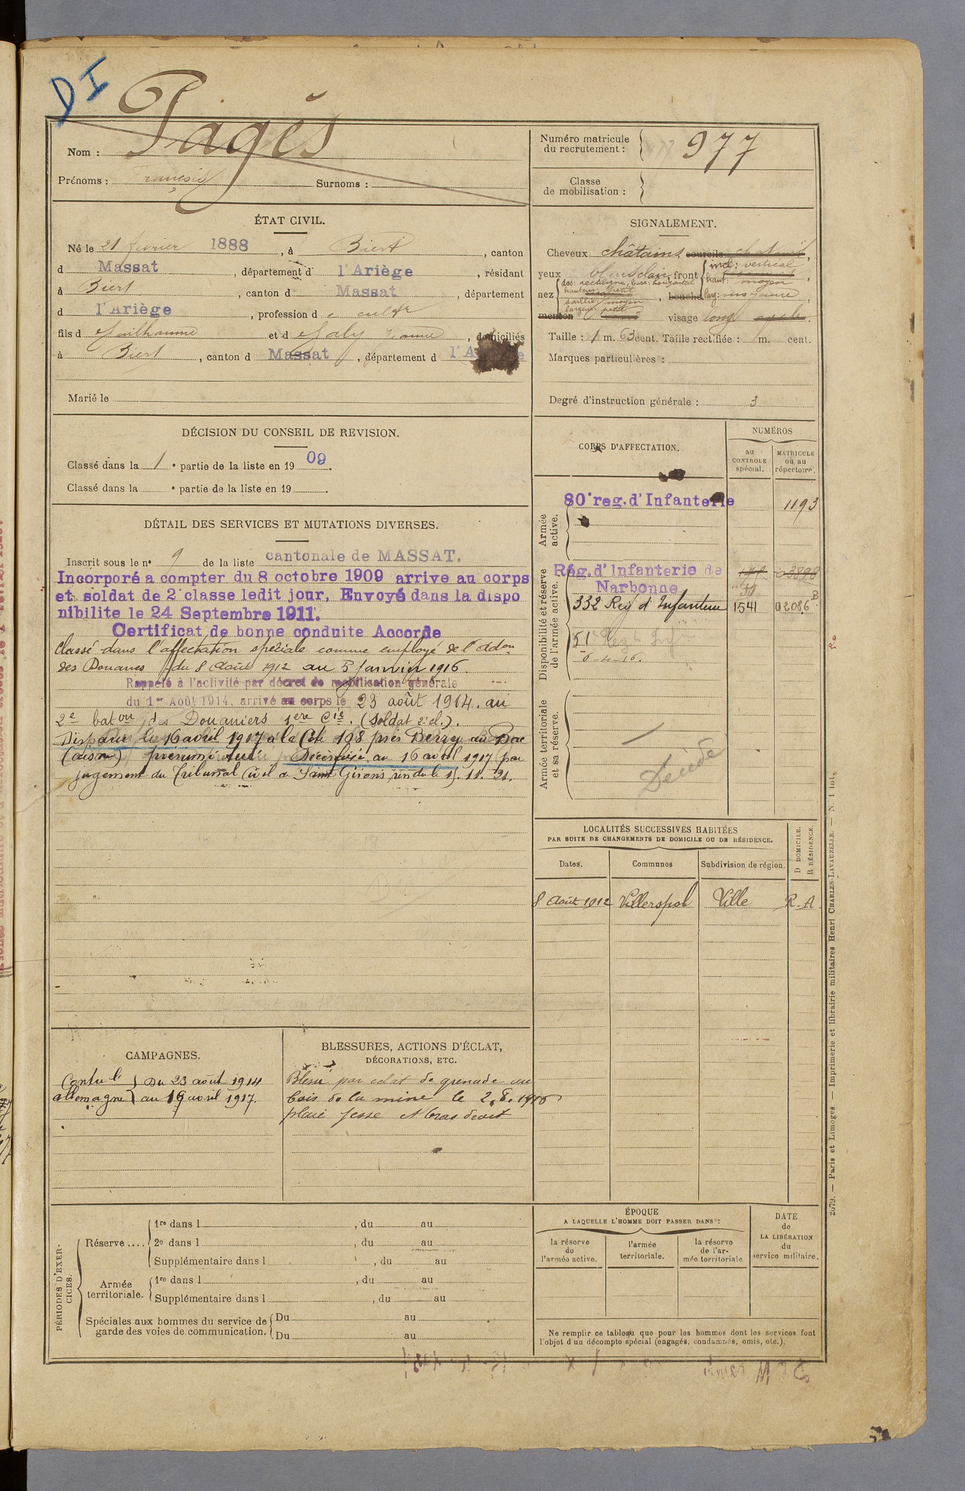 DI
Nom : Pagès
Prénoms : François Surnoms :
Numéro matricule du recrutement : 977
Classe de mobilisation :
ÉTAT CIVIL.
Né le 21 février 1888, à Biert, canton
d Massat, département d l'Ariège, résidant
à Biert, canton d Massat, département
d l'Ariège, profession d cultr
fils d Guilhaume et d Galy Jeanne, domiciliés
à Biert, canton d Massat, département d l'A
Marié le
SIGNALEMENT.
Cheveux châtains sourcils
yeux front incl : vertical
haut : moyen
nez dos rectiligne, base horizontal
hauteur petit
saillie moyen
largeur petit
bouche larg : moyenne
menton visage long
Taille : 1 m. 63 cent. Taille rectifiée : m. cent.
Marques particulières :
Degré d'instruction générale : 3
DÉCISION DU CONSEIL DE REVISION.
Classé dans la 1e partie de la liste en 1909.
Classé dans la e partie de la liste en 19 .
DÉTAIL DES SERVICES ET MUTATIONS DIVERSES.
Inscrit sous le no 9 de la liste cantonale de MASSAT.
Incorporé a compter du 8 octobre 1909 arrive au corps
et soldat de 2e classe ledit jour. Envoyé dans la dispo
nibilite le 24 Septembre 1911.
Certificat de bonne conduite Accorde
Classé dans l'affectation spéciale comme employé de l'Adon
des Douanes du 8 Août 1912 au 5 Janvier 1916.
Rappelé à l'activité par décret de mobilisation générale
du 1er Août 1914, arrivé au corps le 23 août 1914. au
2e baton des Douaniers 1ère Cie. (Soldat 2 cl.).
Disparu le 16 avril 1917 à la Côte 108 près Berry au Bac
(aisne) présumé tué. Décès fixé au 16 avril 1917 par
jugement du Tribunal Civil de Saint Girons, rendu le 15. 11. 21.
CORPS D'AFFECTATION.
NUMÉROS
au CONTROLE spécial.
MATRICULE ou au répertoire.
Armée active.
80e reg. d'Infanterie 1193
Disponibilité et réserve de l'armée active.
Rég. d'Infanterie de
Narbonne
332 Reg d'Infanterie 1541 02086
51e Regt Inf
Armée territoriale et sa réserve.
Décédé
LOCALITÉS SUCCESSIVES HABITÉES
PAR SUITE DE CHANGEMENTS DE DOMICILE OU DE RÉSIDENCE.
Dates. Communes Subdivision de région. D DOMICILE. R RÉSIDENCE.
8 Août 1912 Villerspol Ville R. A.
CAMPAGNES.
Contre l'allemagne Du 23 août 1914
au 16 avril 1917.
BLESSURES, ACTIONS D'ÉCLAT,
DÉCORATIONS, ETC.
Blessé par éclat de grenade au
bois de la mine le 2.8.1916
plaie fesse et bras droit
PÉRIODES D'EXERCICES.
Réserve .... 1re dans l , du au
2e dans l , du au
Supplémentaire dans l , du au
Armée territoriale. 1re dans l , du au
Supplémentaire dans l , du au
Spéciales aux hommes du service de garde des voies de communication. Du au
Du au
ÉPOQUE
A LAQUELLE L'HOMME DOIT PASSER DANS :
la réserve de l'armée active.
l'armée territoriale.
la réserve de l'armée territoriale
DATE de LA LIBÉRATION du service militaire.
Ne remplir ce tableau que pour les hommes dont les services font
l'objet d'un décompte spécial (engagés, condamnés, omis, etc.).
2079. — Paris et Limoges. — Imprimerie et librairie militaires Henri CHARLES-LAVAUZELLE. —